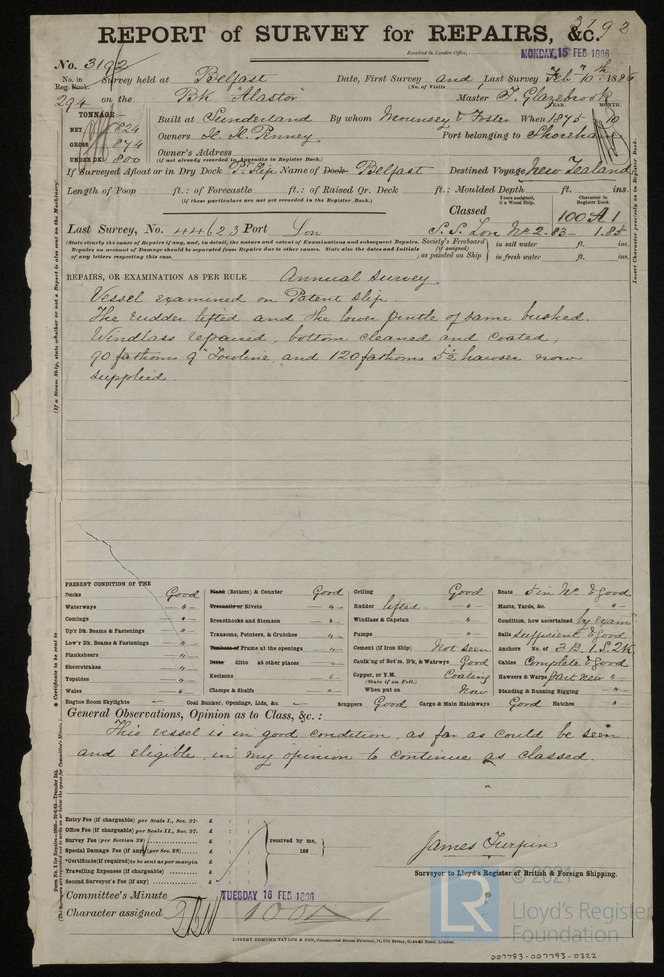 3192
REPORT of SURVEY for REPAIRS, &c.
Received in London Office, MONDAY, 15 FEB 1886
No. 3192
No. in Reg. Book. Survey held at Belfast Date, First Survey and Last Survey Feby 10th 1886
(No. of Visits
294 on the Bk "Alastor" Master T. Glazebrook
TONNAGE:— YEAR. MONTH.
NET 824 Built at Sunderland By whom Mounsey & Foster When 1875 10
GROSS 874 Owners H. H. Penney Port belonging to Shoreham
UNDER DK 800 Owner's Address
(if not already recorded in Appendix to Register Book.)
If Surveyed Afloat or in Dry Dock Pt Slip Name of Dock Belfast Destined Voyage New Zealand
Length of Poop ft.: of Forecastle ft.: of Raised Qr. Deck ft.: Moulded Depth ft. ins.
(If these particulars are not yet recorded in the Register Book.)
Years assigned, if a Wood Ship. Character in Register Book.
Classed 100 A 1
Last Survey, No. 44623 Port Lon S. S. Lon No 2-83- 1.85
(State clearly the cause of Repairs if any, and, in detail, the nature and extent of Examinations and subsequent Repairs. Repairs on account of Damage should be separated from Repairs due to other causes. State also the dates and Initials of any letters respecting this case.
Society's Freeboard (if assigned) as painted on Ship in salt water ft. ins.
in fresh water ft. ins.
REPAIRS, OR EXAMINATION AS PER RULE Annual Survey
Vessel examined on Patent slip.
The rudder lifted and the lower pintle of same bushed.
Windlass repaired, bottom cleaned and coated,
90 fathoms 9" Towline and 120 fathoms 5½ hawser now
supplied.
PRESENT CONDITION OF THE
Decks Good
Waterways "
Comings "
Up'r Dk. Beams & Fastenings "
Low'r Dk. Beams & Fastenings "
Planksheers "
Sheerstrakes "
Topsides "
Wales "
Engine Room Skylights —
Plank (Bottom) & Counter Good
Treenails or Rivets "
Breasthooks and Stemson "
Transoms, Pointers, & Crutches "
Timbers of Frame at the openings "
Ditto ditto at other places "
Keelsons "
Clamps & Shelfs "
Coal Bunker, Openings, Lids, &c. —
Ceiling Good
Rudder lifted "
Windlass & Capstan "
Pumps "
Cement (if Iron Ship) Not seen
Caulk'ng of Bot'm, D'k, & Waterw'ys Good
Copper, or Y.M. Coating
(State if on Felt.)
When put on Now
Scuppers Good Cargo & Main Hatchways Good Hatches "
Boats 4 in No. & good
Masts, Yards, &c. "
Condition, how ascertained by exam
Sails sufficient & Good
Anchors No. of 3B. 1 S. 2K.
Cables Complete & Good
Hawsers & Warps Part new "
Standing & Running Rigging "
General Observations, Opinion as to Class, &c. :
This vessel is in good condition, as far as could be seen
and eligible, in my opinion to continue as classed.
Entry Fee (if chargeable) per Scale I., Sec. 27- £ : :
Office Fee (if chargeable) per Scale II., Sec. 27. £ : :
Survey Fee (per Section 28) £ : :
Special Damage Fee (if any) (per Sec. 28) £ : :
*Certificate (if required) to be sent as per margin
Travelling Expenses (if chargeable) £ : :
Second Surveyor's Fee (if any) £ : :
received by me,
188
James Turpin
Surveyor to Lloyd's Register of British & Foreign Shipping.
Committee's Minute TUESDAY 16 FEB 1886
Character assigned 100A1
ROBERT EDMUND TAYLOR & SON, Commercial Steam Printers, 19, Old Street, Goswell Road, London.
Insert Character precisely as in Register Book.
© 2021
LR
Lloyd's Register
Foundation
007793-007793-0322